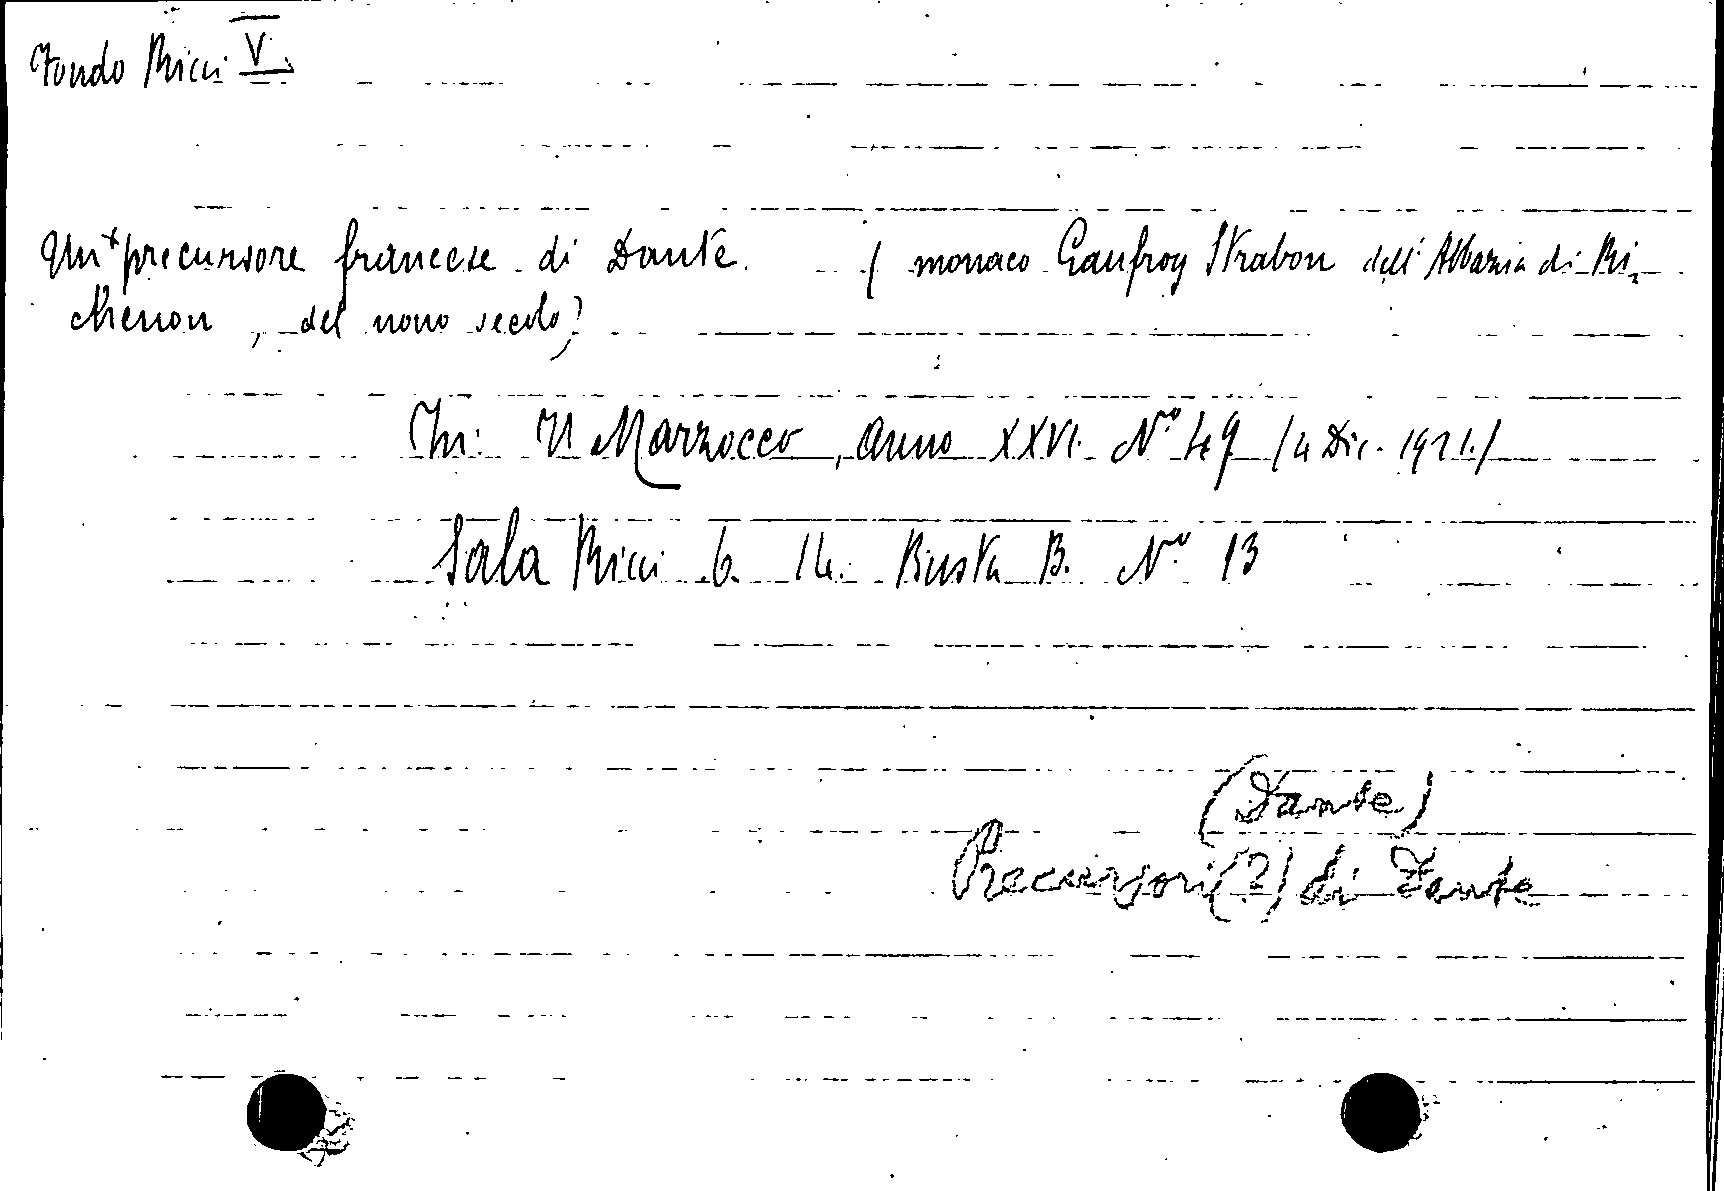 Fondo Ricci V.
Un precursore francese di Dante. (monaco Gaufroy Strabon dell'Abbazia di Ri-
chenon, del nono secolo)
In: Il Marzocco, anno XXVI. No 49 (4 Dic. 1921.)
Sala Ricci 6. 14. Busta B. No 13
(Dante)
Precursori(?) di Dante